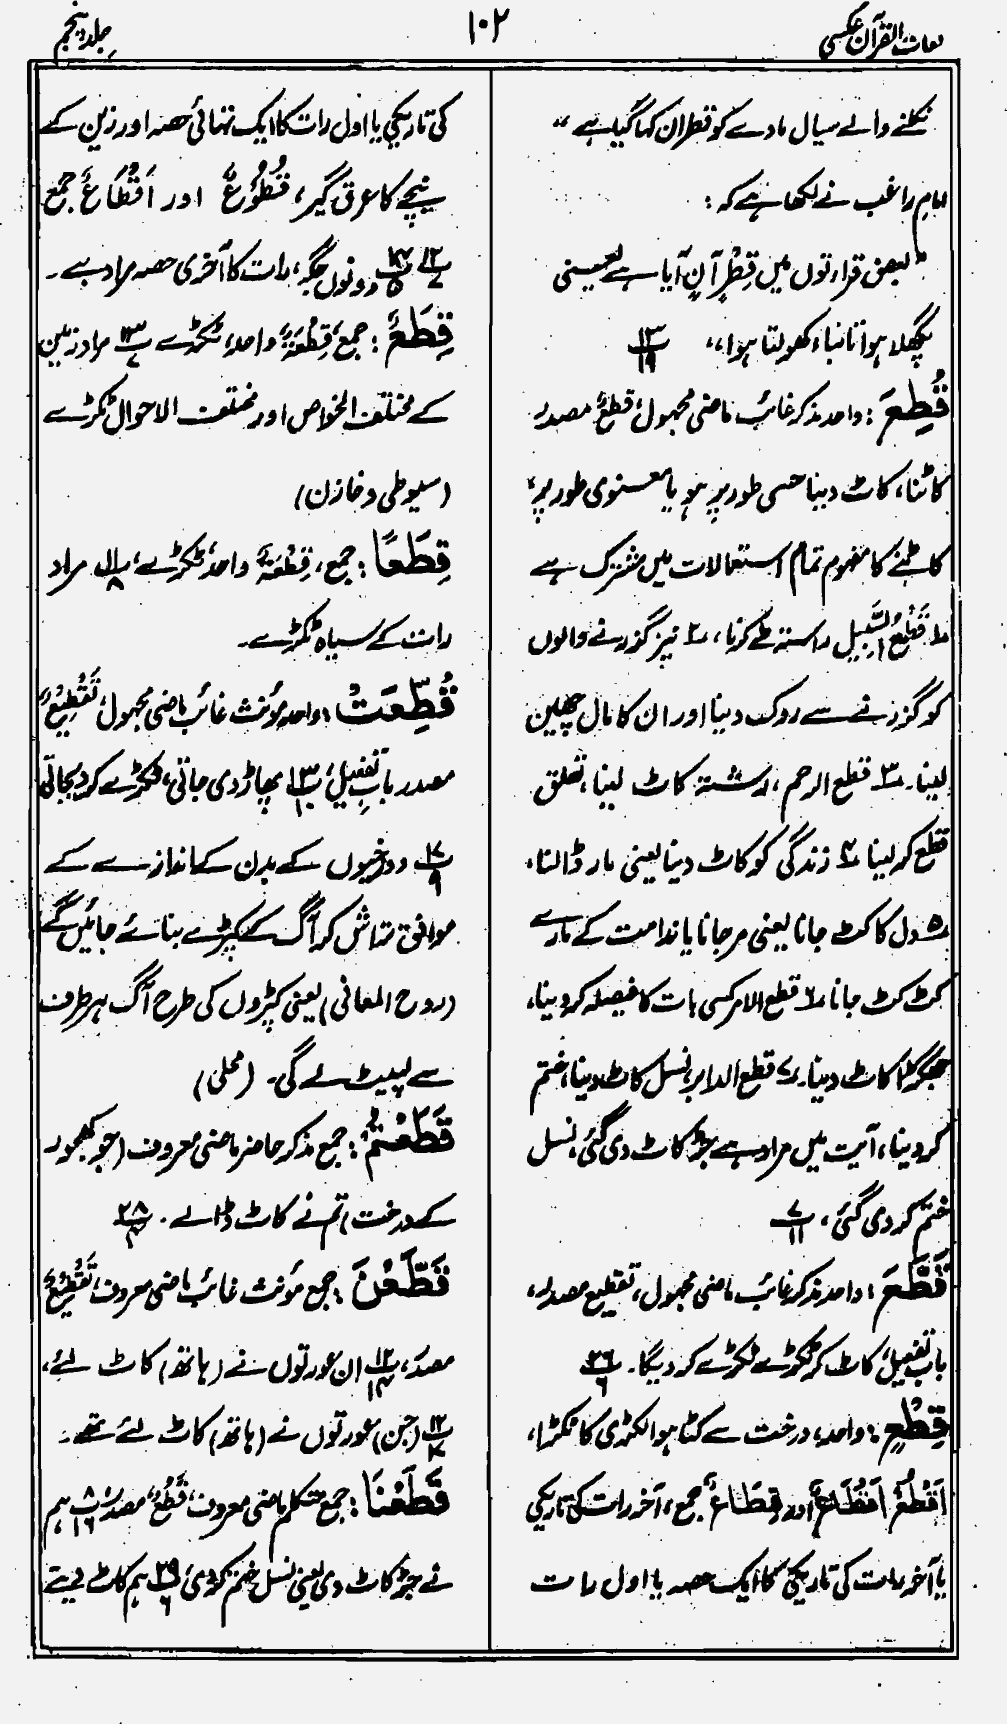 لغات القرآن عکسی
۱۰۲
جلد پنجم
نکلنے والے سیال مادے کو قطران کہا گیا ہے ،،
امام راغب نے لکھا ہے کہ :
" بعض قراءتوں میں قِطْرٍ آنٍ آیا ہے یعنی
پگھلا ہوا تانبا، کھولتا ہوا،، ۱۳/۱۹
قُطِعَ : واحد مذکر غائب ماضی مجہول، قَطْعٌ مصدر
کاٹنا، کاٹ دینا حسی طور پر ہو یا معنوی طور پر،
کاٹنے کا مفہوم تمام استعمالات میں مشترک ہے
۱ قَطْعُ السَّبِیل راستہ طے کرنا، ۲ نیز گزرنے والوں
کو گزرنے سے روک دینا اور ان کا مال چھین
لینا۔ ۳ قطع الرحم، رشتہ کاٹ لینا، تعلق
قطع کر لینا ۴ زندگی کو کاٹ دینا یعنی مار ڈالنا،
۵ دل کا کٹ جانا یعنی مر جانا یا ندامت کے مارے
کٹ کٹ جانا ۶ قطع الامر کسی بات کا فیصلہ کر دینا،
جھگڑا کاٹ دینا۔ ۷ قطع الدابر نسل کاٹ دینا، ختم
کر دینا، آیت میں مراد ہے جڑ کاٹ دی گئی، نسل
ختم کر دی گئی، ۷/۱۱
قَطَّعَ : واحد مذکر غائب، ماضی مجہول، تقطیع مصدر،
باب تفعیل، کاٹ کر ٹکڑے ٹکڑے کر دیگا۔ ۲۶/۶
قِطْعٍ : واحد، درخت سے کٹا ہوا لکڑی کا ٹکڑا،
اَقْطُعٌ اَقْطَاعٌ اور قِطَاعٌ جمع، آخر رات کی تاریکی
یا آخر رات کی تاریکی کا ایک حصہ یا اول رات
کی تاریکی یا اول رات کا ایک تہائی حصہ اور زین کے
نیچے کا عرق گیر، قُطُوْعٌ اور اَقْطَاعٌ جمع
۱۲/۷ ۱۴/۵ دونوں جگہ، رات کا آخری حصہ مراد ہے۔
قِطَعٌ : جمع، قِطْعَۃٌ واحد، ٹکڑے ۱۳/۷ مراد زمین
کے مختلف الخواص اور مختلف الاحوال ٹکڑے
(سیوطی و خازن)
قِطَعًا : جمع، قِطْعَۃٌ واحد، ٹکڑے، ۱۱/۸ مراد
رات کے سیاہ ٹکڑے۔
قُطِّعَتْ : واحد مؤنث غائب ماضی مجہول، تَقْطِیْعٌ
مصدر باب تفعیل، ۱۳/۱۰ پھاڑ دی جاتی، ٹکڑے کر دیجاتی
۱۷/۹ دوزخیوں کے بدن کے اندازے کے
موافق تراش کر آگ کے کپڑے بنائے جائیں گے
(روح المعانی) یعنی کپڑوں کی طرح آگ ہر طرف
سے لپیٹ لے گی۔ (محلی)
قَطَعْتُمْ : جمع مذکر حاضر ماضی معروف (جو کھجور
کے درخت) تم نے کاٹ ڈالے۔ ۲۸/۴
قَطَّعْنَ : جمع مؤنث غائب ماضی معروف، تَقْطِیْعٌ
مصدر، ۱۲/۱۴ ان عورتوں نے (ہاتھ) کاٹ لئے،
۱۲/۱۷ (جن) عورتوں نے (ہاتھ) کاٹ لئے تھے۔
قَطَعْنَا : جمع متکلم ماضی معروف، قَطْعٌ، مصدر، ۸/۱۶ ہم
نے جڑ کاٹ دی یعنی نسل ختم کر دی، ۲۹/۶ ہم کاٹ دیتے